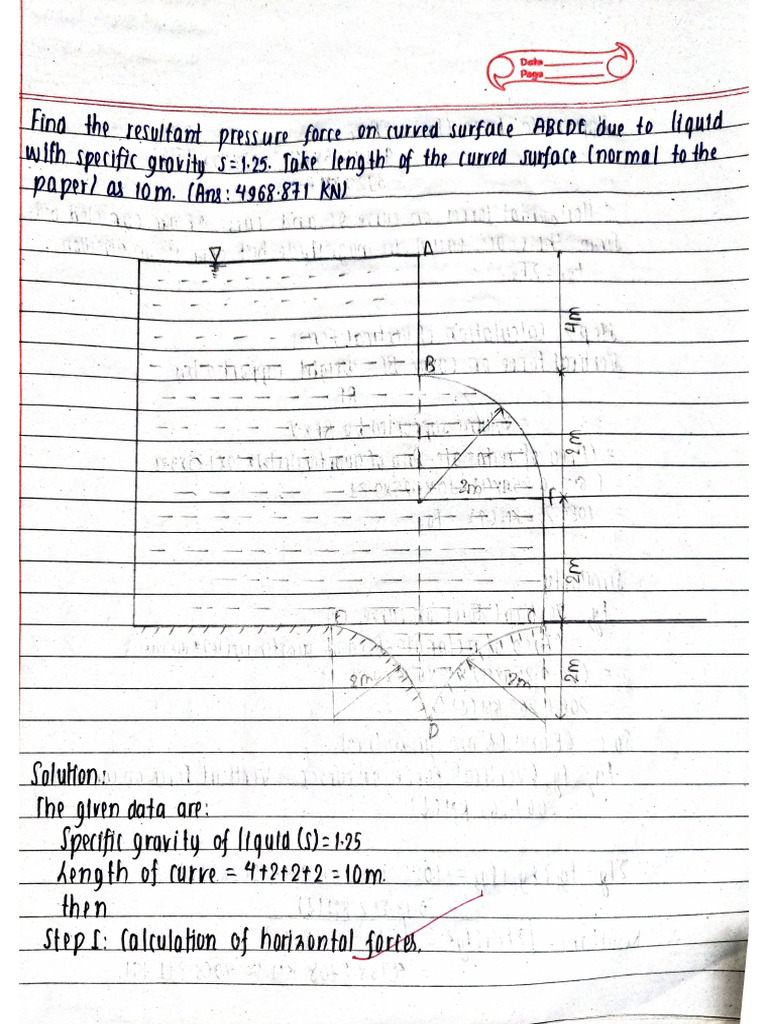 Data
Page
Find the resultant pressure force on curved surface ABCDE due to liquid
with specific gravity S=1.25. Take length of the curved surface (normal to the
paper) as 10m. (Ans: 4968.871 KN)
A
4m
B
2m
2m
2m
2m
2m
2m
D
Solution:
The given data are:
Specific gravity of liquid (S)=1.25
Length of curve = 4+2+2+2=10m.
then
Step I: Calculation of horizontal forces.